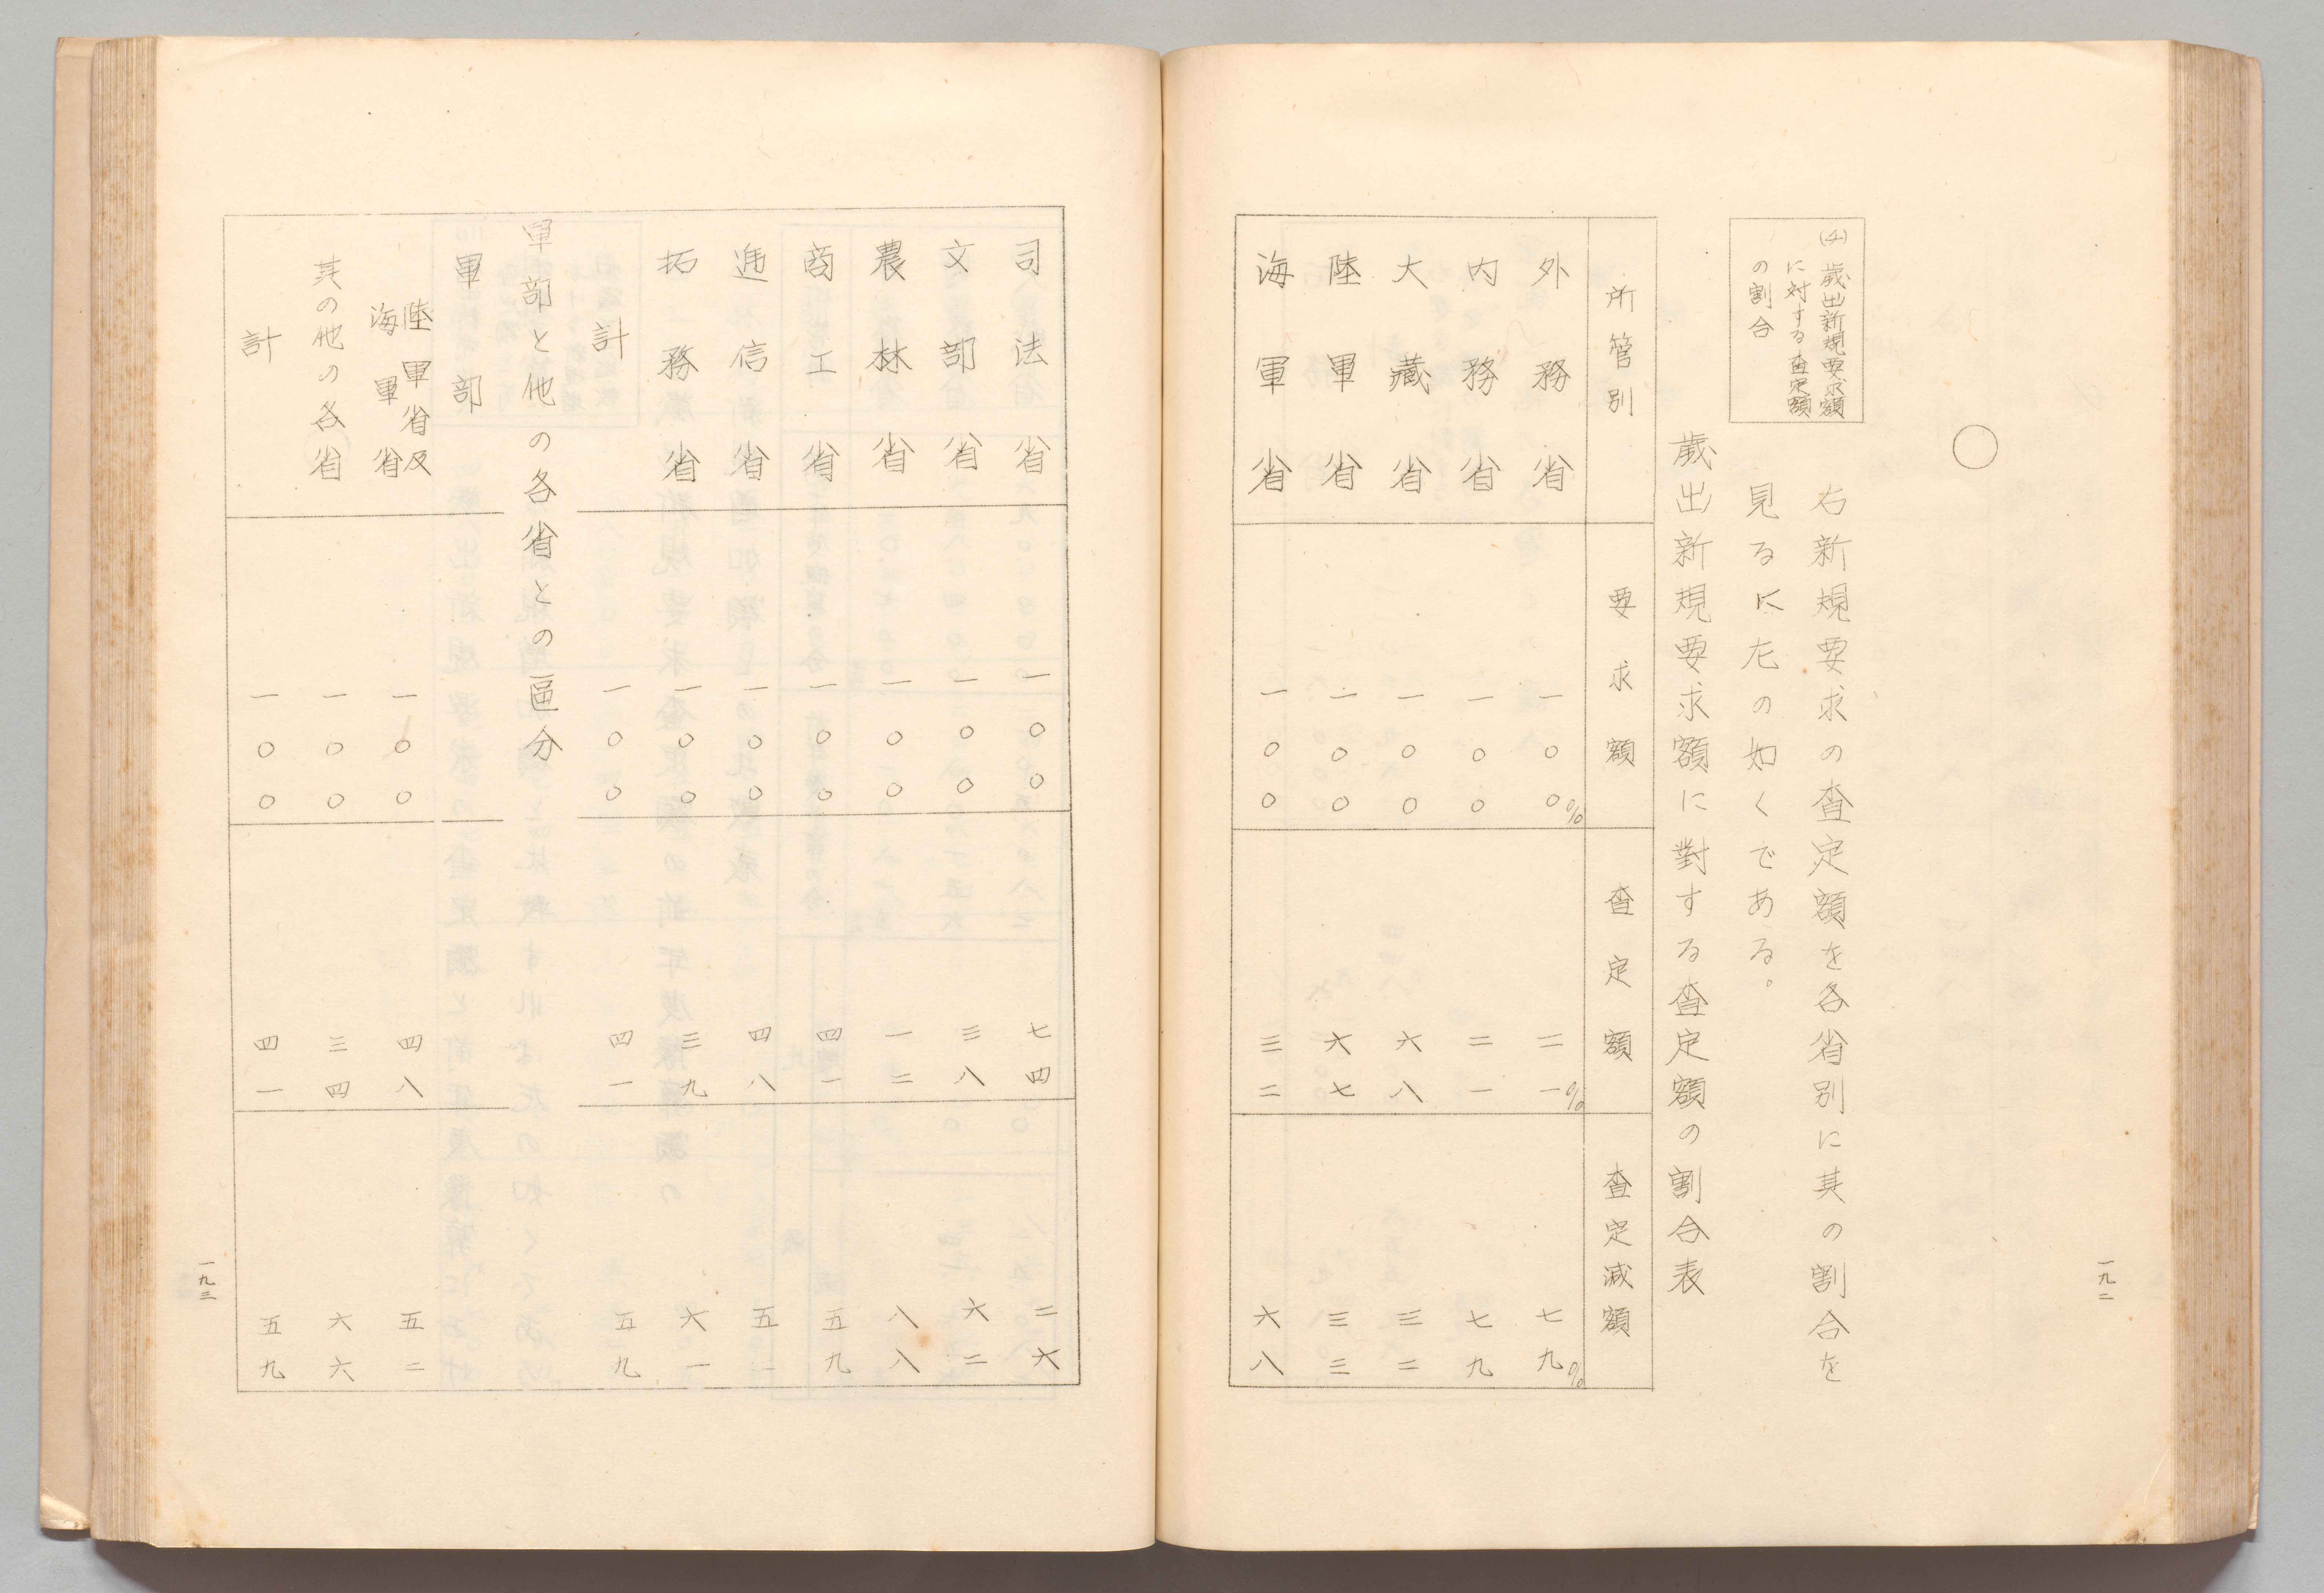 一九二
○
(チ)歳出新規要求額
に対する査定額
の割合
右新規要求の査定額を各省別に其の割合を
見るに左の如くである。
歳出新規要求額に對する査定額の割合表
所管別 要求額 査定額 査定減額
外務省 一〇〇% 二一% 七九%
内務省 一〇〇 二一 七九
大藏省 一〇〇 六八 三二
陸軍省 一〇〇 六七 三三
海軍省 一〇〇 三二 六八
司法省 一〇〇 七四 二六
文部省 一〇〇 三八 六二
農林省 一〇〇 一二 八八
商工省 一〇〇 四一 五九
逓信省 一〇〇 四八 五一
拓務省 一〇〇 三九 六一
計 一〇〇 四一 五九
軍部と他の各省との區分
軍部
陸軍省及
海軍省 一〇〇 四八 五二
其の他の各省 一〇〇 三四 六六
計 一〇〇 四一 五九
一九三